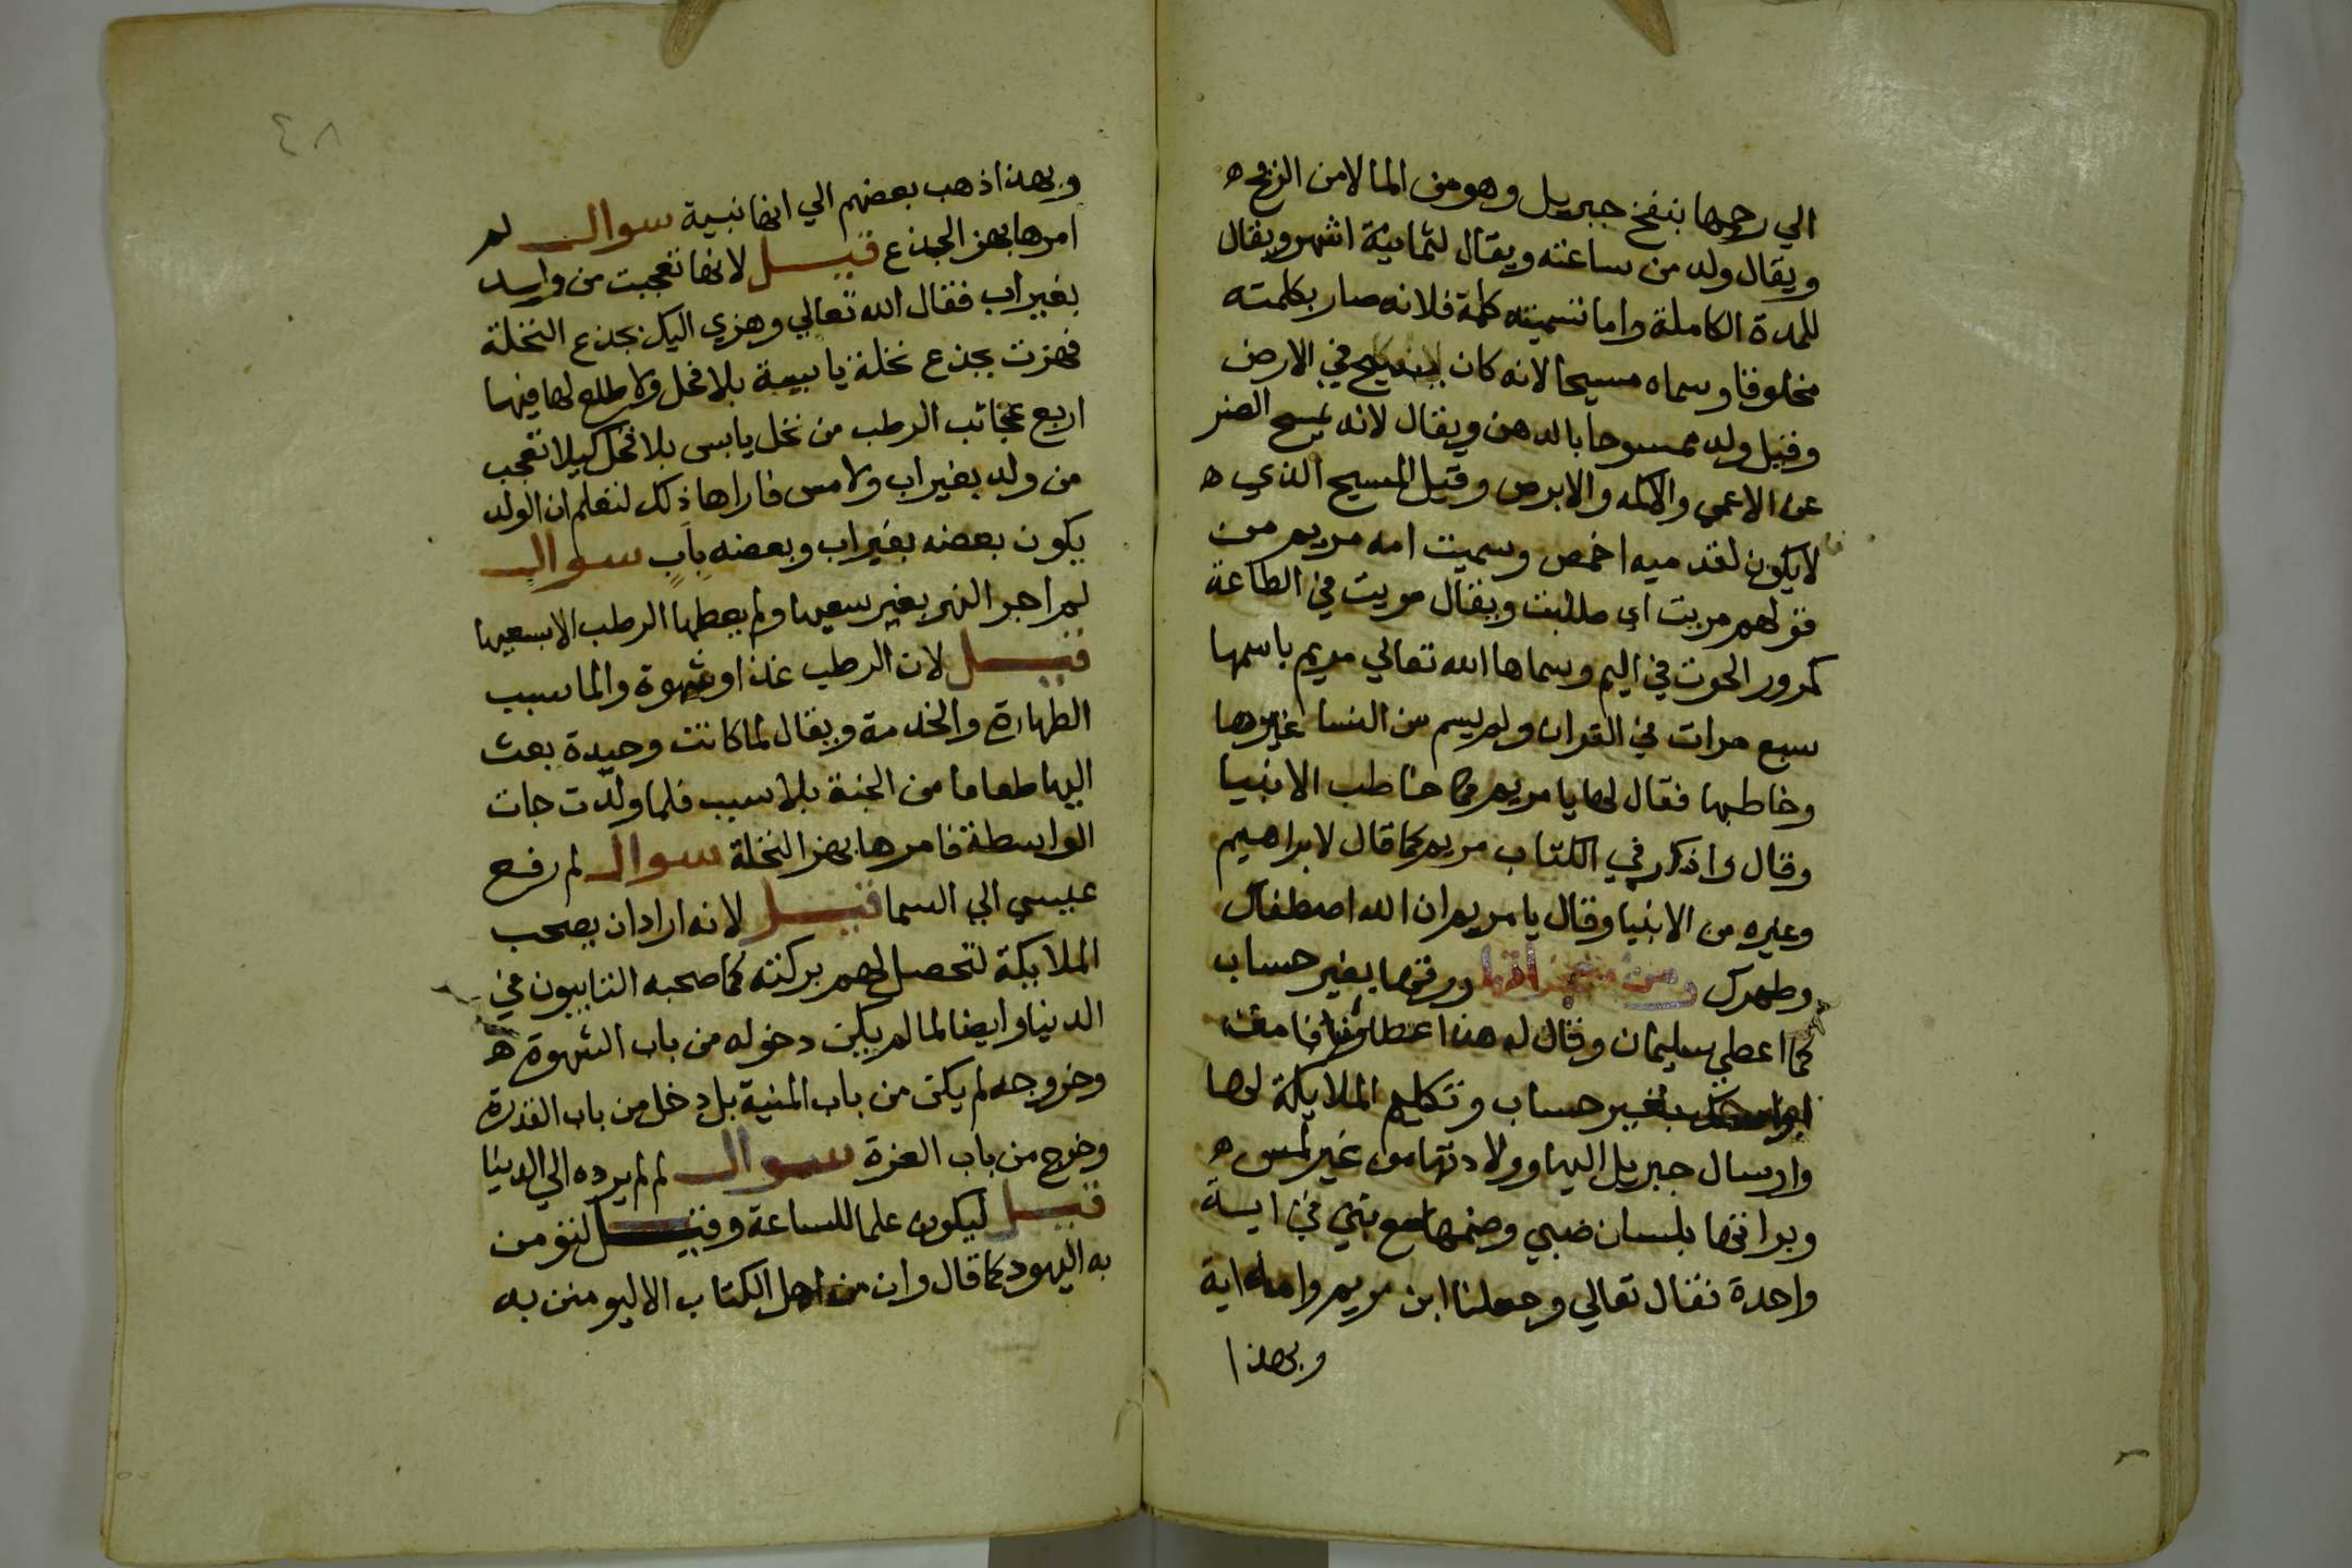 الي رحمها بنفخ جبريل وهو من الما لا من الريح ه
ويقال ولد من ساعته ويقال لثمانية اشهر ويقال
للمدة الكاملة واما تسميته كلمة فلانه صار بكلمته
مخلوقا وسماه مسيحا لانه كان يسيح في الارض
وقيل ولد ممسوحا بالدهن ويقال لانه يمسح الضر
عن الاعمي والاكمه والابرص وقيل المسيح الذي ه
لا يكون لقدميه اخمص وسميت امه مريم من
قولهم مريت اي طلبت ويقال مريت في الطاعة
كمرور الحوت في اليم وسماها الله تعالي مريم باسمها
سبع مرات في القران ولم يسم من النسا غيرها
وخاطبها فقال لها يا مريم كما خاطب الانبيا
وقال واذكر في الكتاب مريم كما قال لابراهيم
وغيره من الانبيا وقال يا مريم ان الله اصطفاك
وطهرك ورزقها بغير حساب
كما اعطي سليمان وقال له هذا عطاؤنا فامنن
او امسك بغير حساب وتكليم الملايكة لها
وارسال جبريل اليها وولادتها من غير لمس ه
وبراتها بلسان صبي وضمها مع بني في اية
واحدة فقال تعالي وجعلنا ابن مريم وامه اية
وبهذا
٤٨
وبهذا ذهب بعضهم الي انها نبية سوال لم
امرها بهز الجذع قيل لانها تعجبت من وليد
بغير اب فقال الله تعالي وهزي اليك بجذع النخلة
فهزت بجذع نخلة يابسة بلا فحل ولا طلع لها فيها
اربع عجائب الرطب من نخل يابس بلا فحل كيلا تعجب
من ولد بغير اب ولا مس فاراها ذلك لتعلم ان الولد
يكون بعضه بغير اب وبعضه باب سوال
لم اجر النهر بغير سعيها ولم يعطها الرطب الا بسعيها
قيل لان الرطب غذا وشهوة والما سبب
الطهارة والخدمة ويقال لما كانت وحيدة بعث
اليها طعاما من الجنة بلا سبب فلما ولدت جات
الواسطة فامرها بهز النخلة سوال لم رفع
عيسي الي السما قيل لانه اراد ان يصحب
الملايكة لتحصل لهم بركته كما صحبه التايبون في
الدنيا وايضا لما لم يكن دخوله من باب الشهوة ه
وخروجه لم يكن من باب المنية بل دخل من باب القدرة
وخرج من باب العزة سوال لم لم يرده الي الدنيا
قيل ليكون علما للساعة وقيل لتومن
به اليهود كما قال وان من اهل الكتاب الا ليومنن به